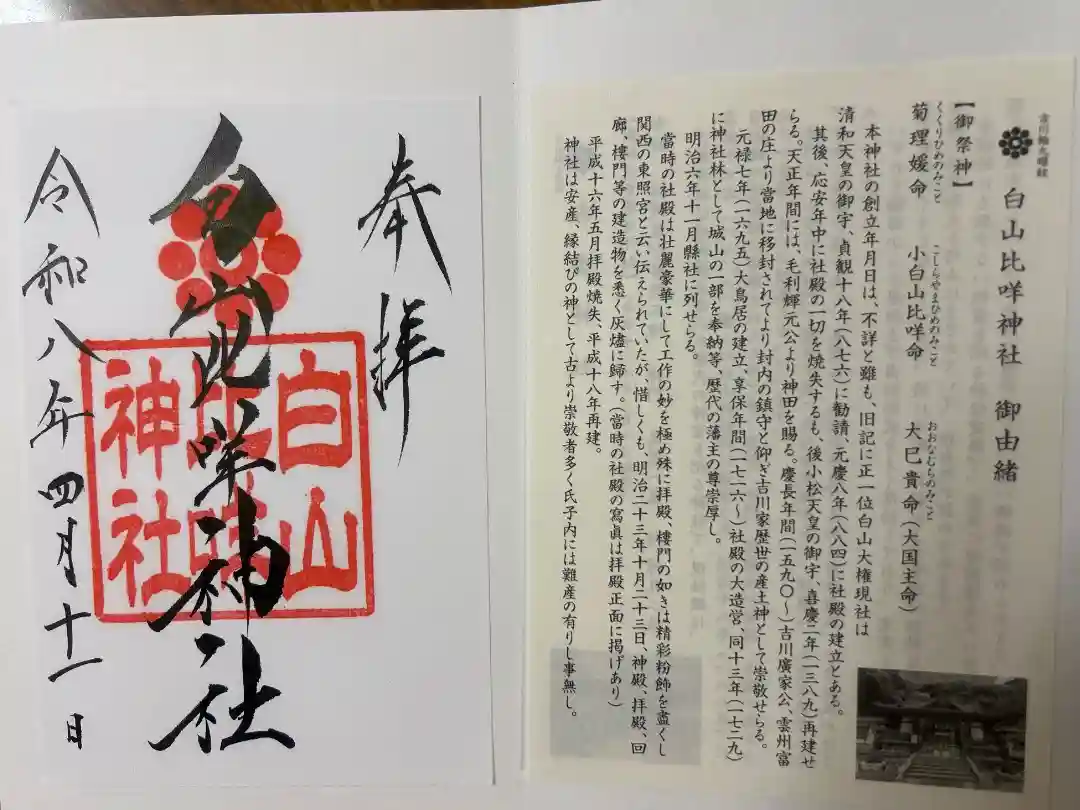 奉拝
白山比咩神社
白山
比咩
神社
令和八年四月十一日
白山比咩神社 御由緒
【御祭神】
くくりひめのみこと こしらやまひめのみこと おおなむちのみこと
菊理媛命 小白山比咩命 大巳貴命(大国主命)
本神社の創立年月日は、不詳と雖も、旧記に正一位白山大権現社は
清和天皇の御宇、貞観十八年(八七六)に勧請、元慶八年(八八四)に社殿の建立とある。
其後、応安年中に社殿の一切を焼失するも、後小松天皇の御宇、喜慶二年(一三八九)再建せ
らる。天正年間には、毛利輝元公より神田を賜る。慶長年間(一五九〇〜)吉川廣家公、雲州富
田の庄より當地に移封されてより封内の鎮守と仰ぎ吉川家歴世の産土神として崇敬せらる。
元禄七年(一六九五)大鳥居の建立、享保年間(一七一六〜)社殿の大造営、同十三年(一七二九)
に神社林として城山の一部を奉納等、歴代の藩主の尊崇厚し。
明治六年十一月縣社に列せらる。
當時の社殿は壮麗豪華にして工作の妙を極め殊に拝殿、樓門の如きは精彩粉飾を盡くし
関西の東照宮と云い伝えられていたが、惜しくも、明治二十三年十月二十三日、神殿、拝殿、回
廊、樓門等の建造物を悉く灰燼に歸す。(當時の社殿の寫眞は拝殿正面に掲げあり)
平成十六年五月拝殿焼失、平成十八年再建。
神社は安産、縁結びの神として古より崇敬者多く氏子内には難産の有りし事無し。